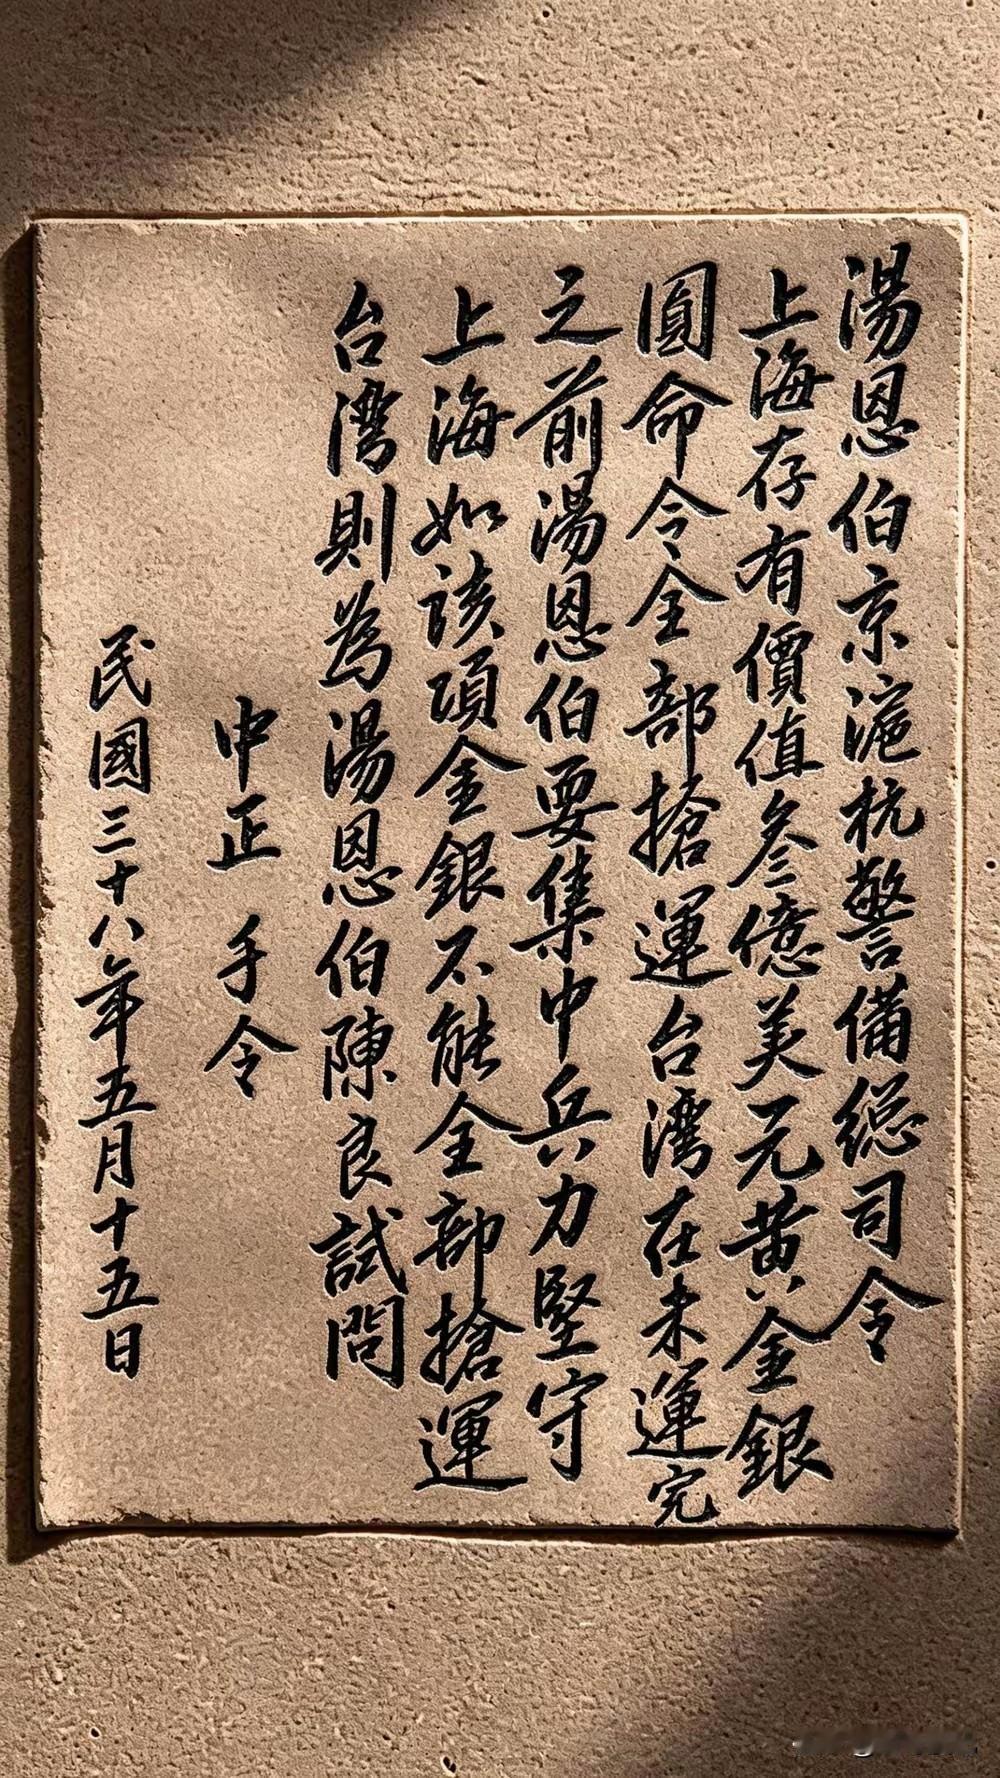 湯恩伯京滬杭警備総司令
上海存有價值叁億美元黄金銀
圓命令全部搶運台湾在未運完
之前湯恩伯要集中兵力堅守
上海如該項金銀不能全部搶運
台湾則為湯恩伯陳良試問
中正 手令
民國三十八年五月十五日